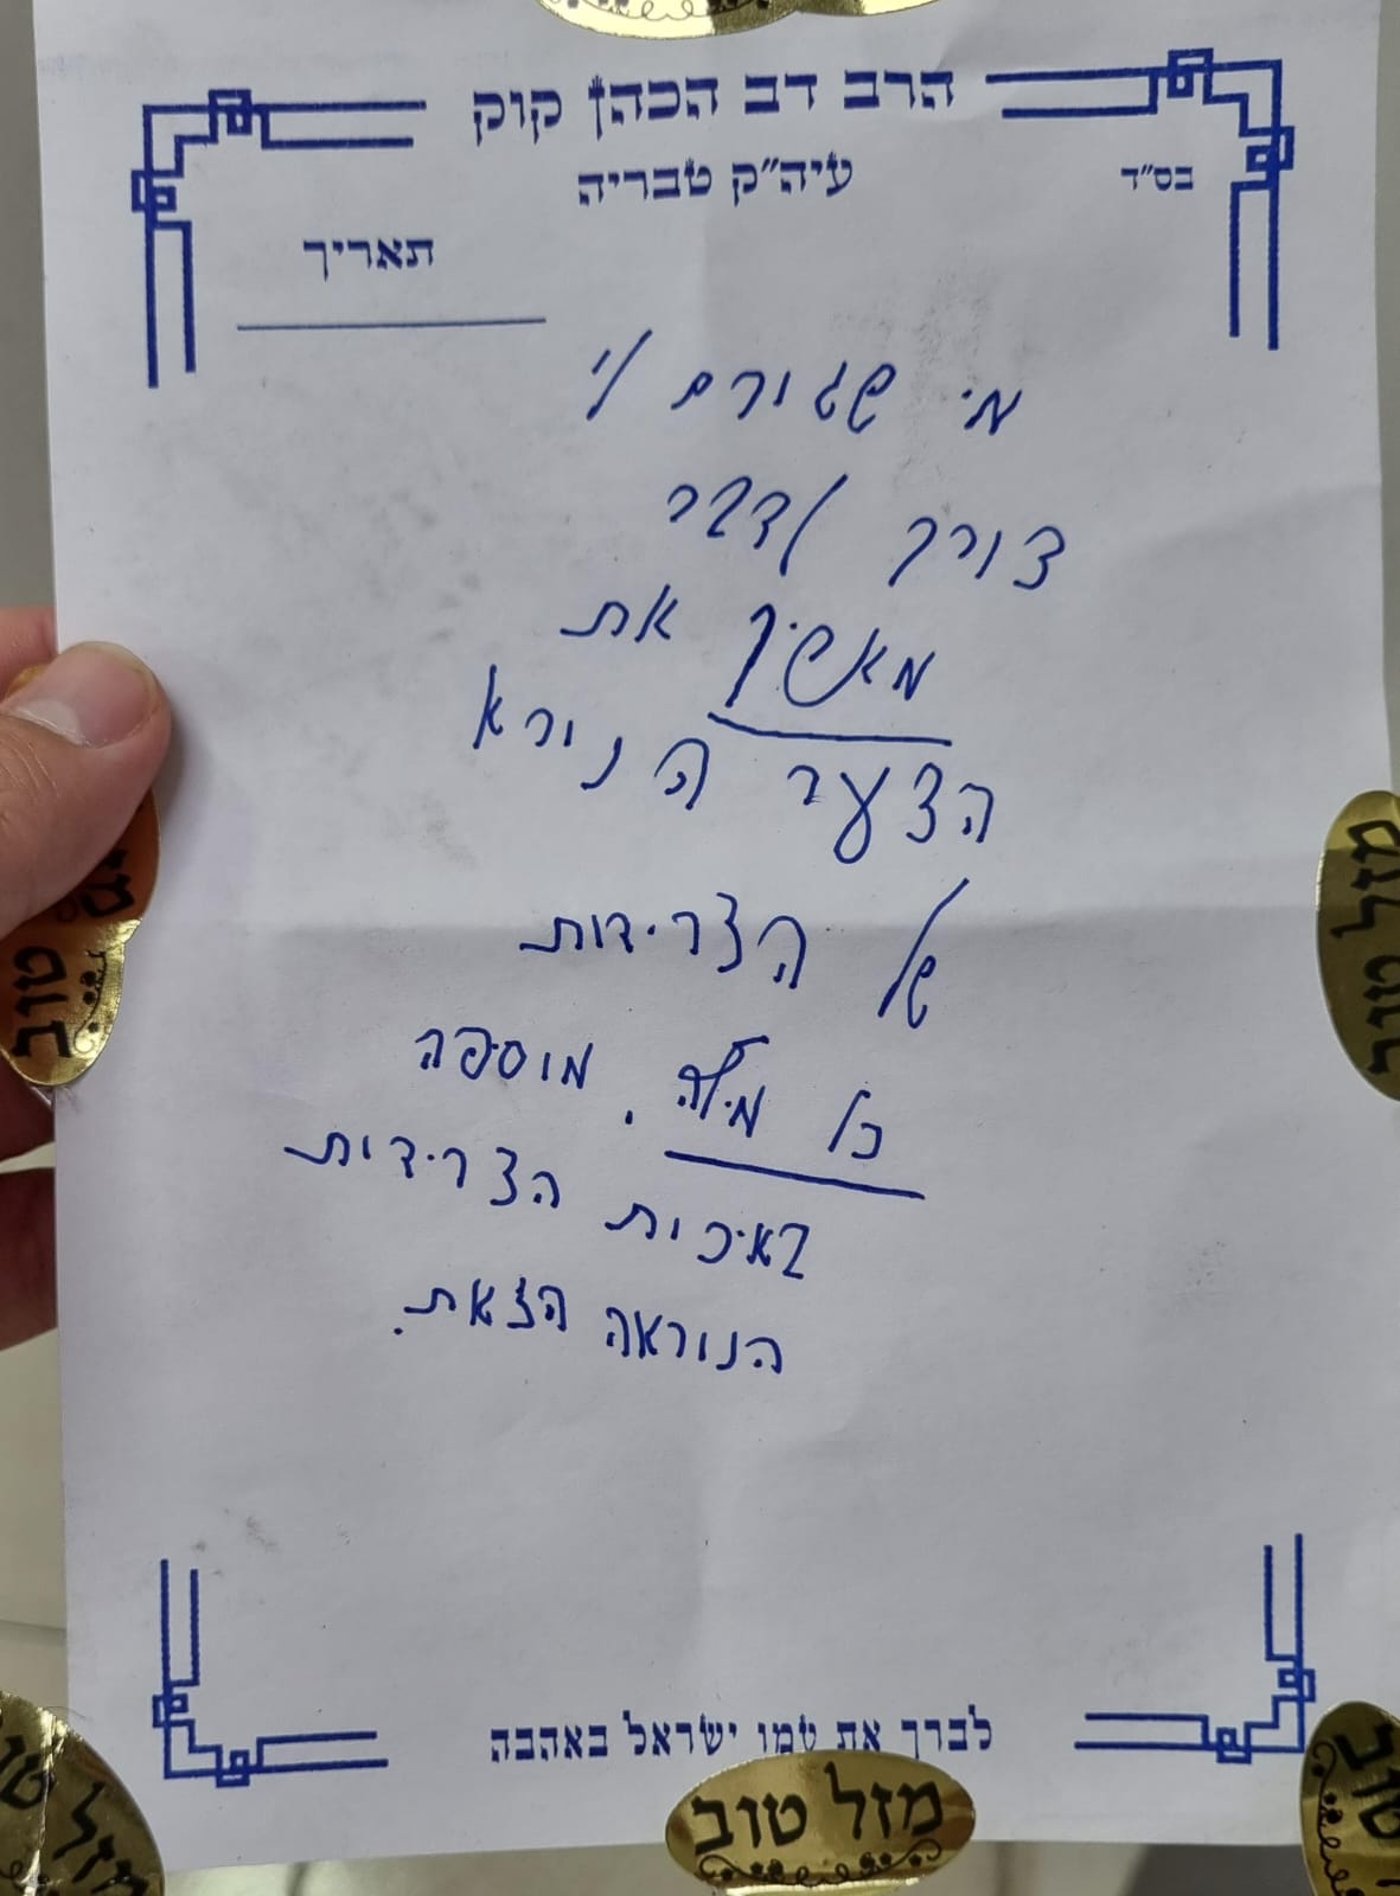 הרב דב הכהן קוק
עיה"ק טבריה
בס"ד
תאריך
מי שגורם לי
צורך לדבר
מאשיך את
הצער הנורא
של הצרידות
כל מילה. מוספה
באיכות הצרידית
הנוראה הזאת.
לברך את עמו ישראל באהבה
מזל טוב
מזל טוב
טוב
מזל טוב
טוב